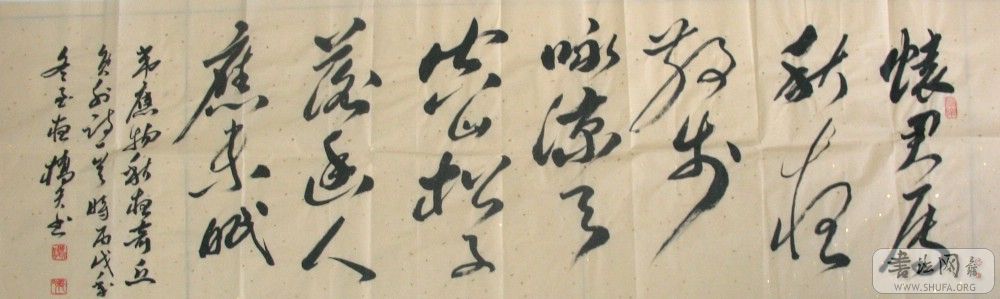 懷君屬
秋夜
散步
詠涼天
空山松子
落幽人
應未眠
韋應物秋夜寄丘
員外詩一首時戊子
冬至夜書
书法网
WWW.SHUFA.ORG